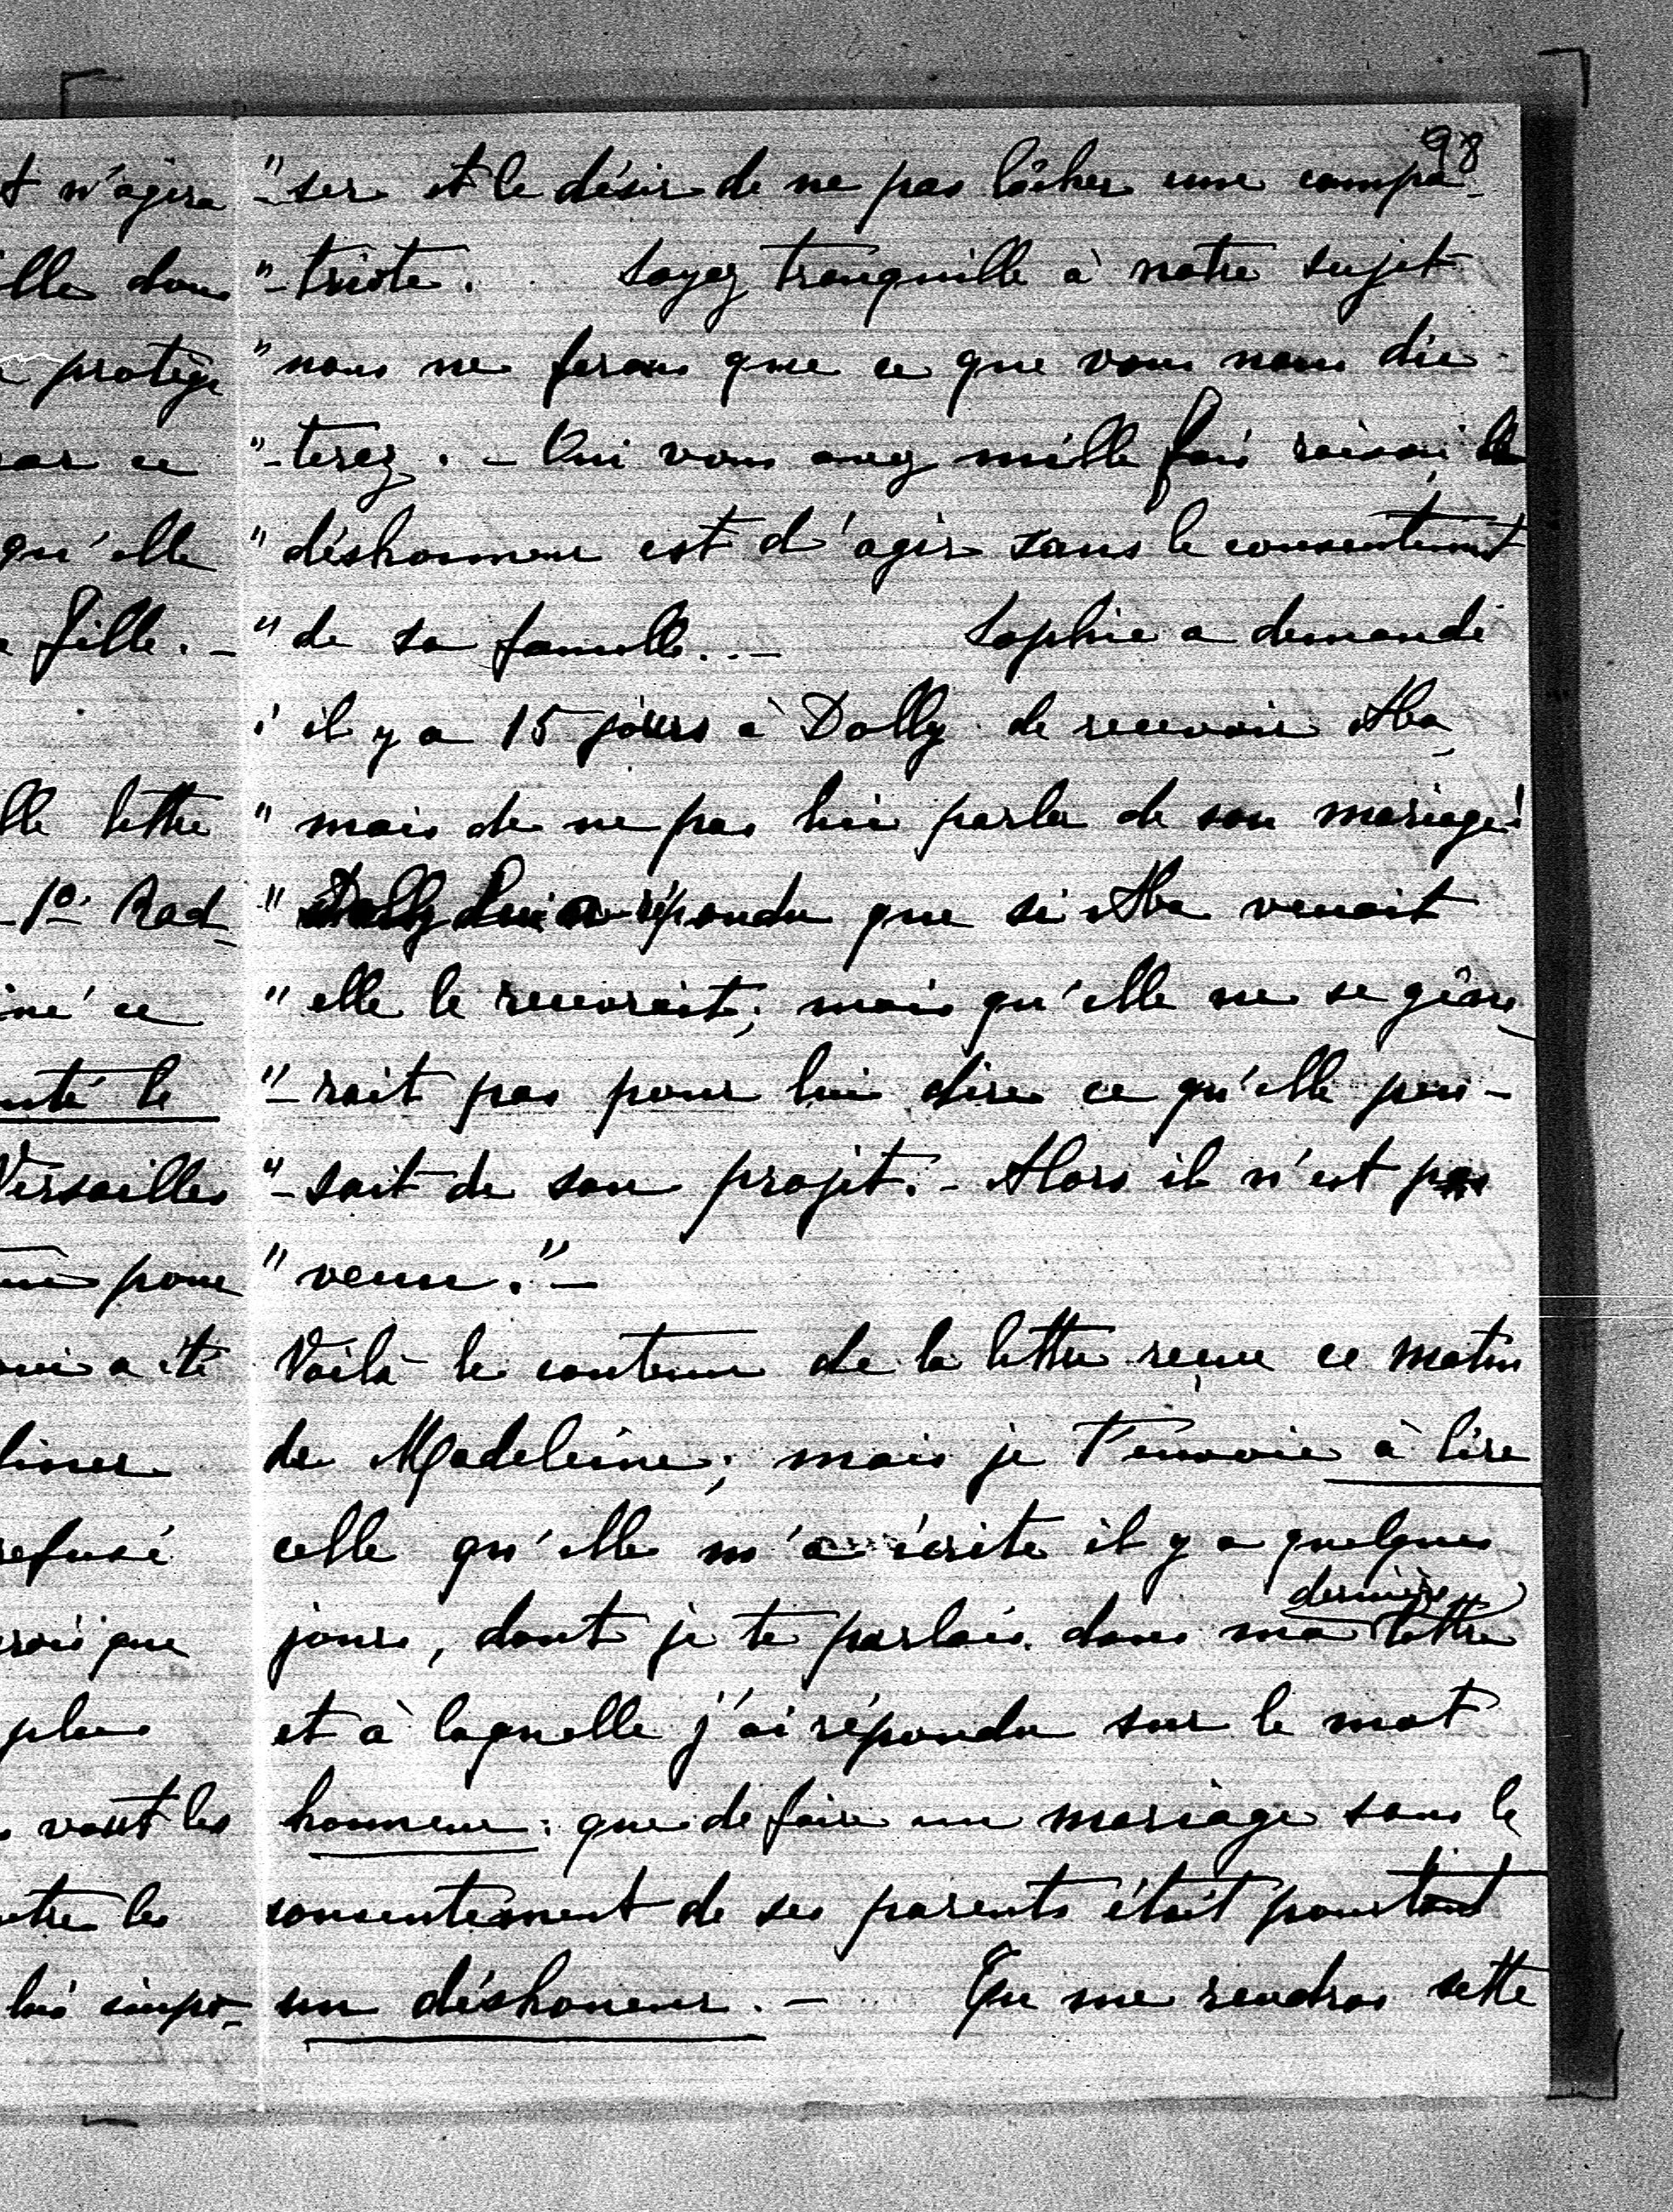 98
"-ser et le désir de ne pas lâcher une compa-
"-triote. Soyez tranquille à notre sujet
"nous ne ferons que ce que vous nous dic-
"-terez. - Oui vous avez mille fois raison, le
"déshonneur est d'agir sans le consentement
"de sa famille. - Sophie a demandé
"il y a 15 jours à Dolly de recevoir Aba
"mais de ne pas lui parler de son mariage!
"Dolly lui a répondu que si Aba venait
"elle le recevrait; mais qu'elle ne se gêne-
"-rait pas pour lui dire ce qu'elle pen-
"-sait de son projet. - Alors il n'est pas
"venu." -
Voilà le contenu de la lettre reçue ce matin
de Madeleine; mais je t'envoie à lire
celle qu'elle m'a écrite il y a quelques
jours, dont je te parlais dans ma dernière lettre
et à laquelle j'ai répondu sur le mot
honneur: que de faire un mariage sans le
consentement de ses parents était pourtant
un déshonneur. - Tu me rendras cette
t n'agira
protège
qu'elle
fille. -
lettre
-1º Rad-
Versailles
pour
a été
refusé
plus
vont les
les
lui impo-